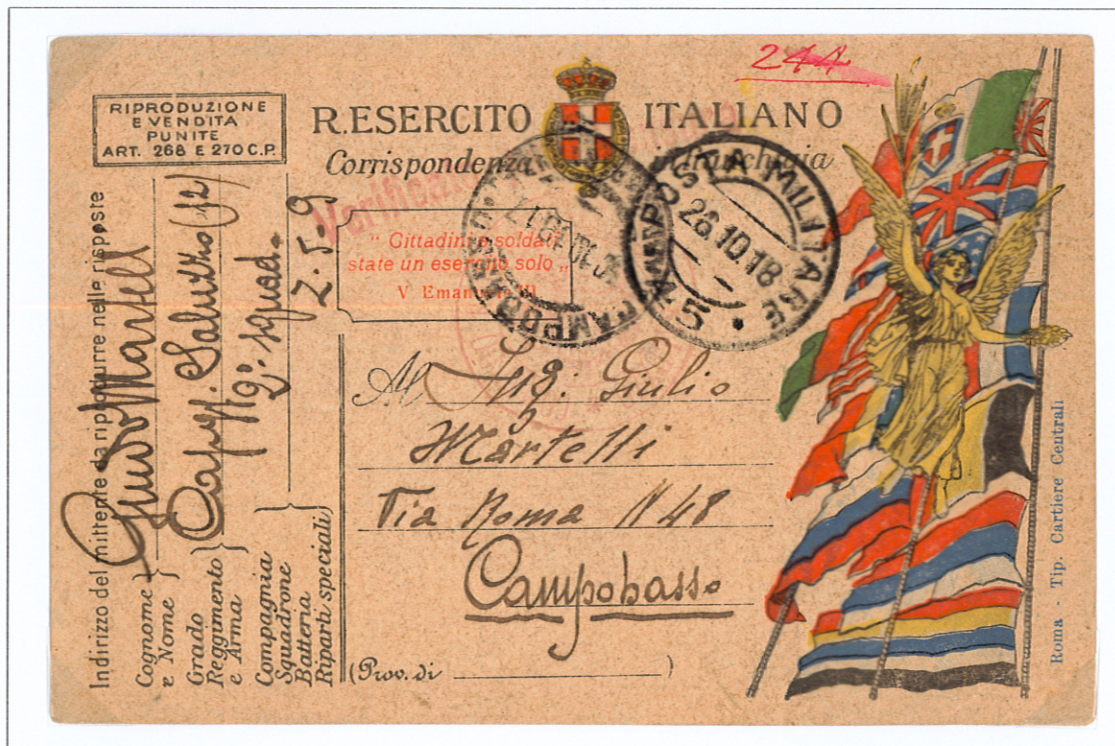 244
RIPRODUZIONE
E VENDITA
PUNITE
ART. 268 E 270 C.P.
R.ESERCITO ITALIANO
Corrispondenza in franchigia
Verificato
" Cittadini e soldati
state un esercito solo „
V Emanuele III
POSTA MILITARE
26.10.18
5
CAMPOBASSO
Al Sig: Giulio
Martelli
Via Roma N 48
Campobasso
(Prov. di )
Indirizzo del mittente da riprodurre nelle risposte
Cognome e Nome } Guido Martelli
Grado Reggimento e Arma } Capm. Saluzzo (12)
Compagnia Squadrone Batteria Riparti speciali } 2º squad.
Z. 5. 9
Roma - Tip. Cartiere Centrali